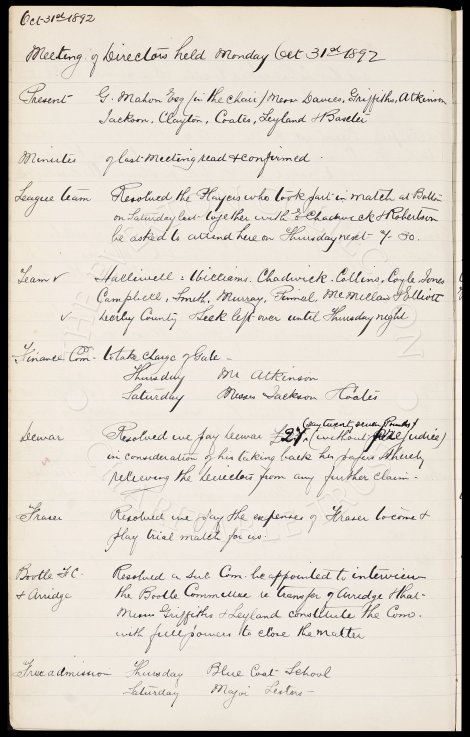 Oct 31st 1892
Meeting of Directors held Monday Oct 31st 1892
Present G. Mahon Esq (in the chair) Messrs Davies, Griffiths, Atkinson
Jackson, Clayton, Coates, Leyland & Baxter
Minutes of last Meeting read & confirmed.
League team Resolved the Players who took part in match at Bolton
on Saturday last together with E Chadwick & Robertson
be asked to attend here on Thursday next 7-30.
Team v Halliwell : Williams. Chadwick. Collins, Coyle, Jones
Campbell, Smith, Murray, Pinnel, McMillan & Elliott
v Derby County & Leek left over until Thursday night
Finance Com. to take charge of Gate -
Thursday Mr Atkinson
Saturday Messrs Jackson & Coates
Dewar Resolved we pay Dewar £27. (say twenty seven Pounds) (without prejudice)
in consideration of his taking back his papers & thereby
relieving the Directors from any further claim.
Fraser Resolved we pay the expenses of Fraser to come &
play trial match for us.
Bootle FC Resolved a Sub Com. be appointed to interview
& Arridge the Bootle Committee re transfer of Arridge & that
Messrs Griffiths & Leyland constitute the Com.
with full powers to close the matter
Free admission Thursday Blue Coat School
Saturday Major Lesters -